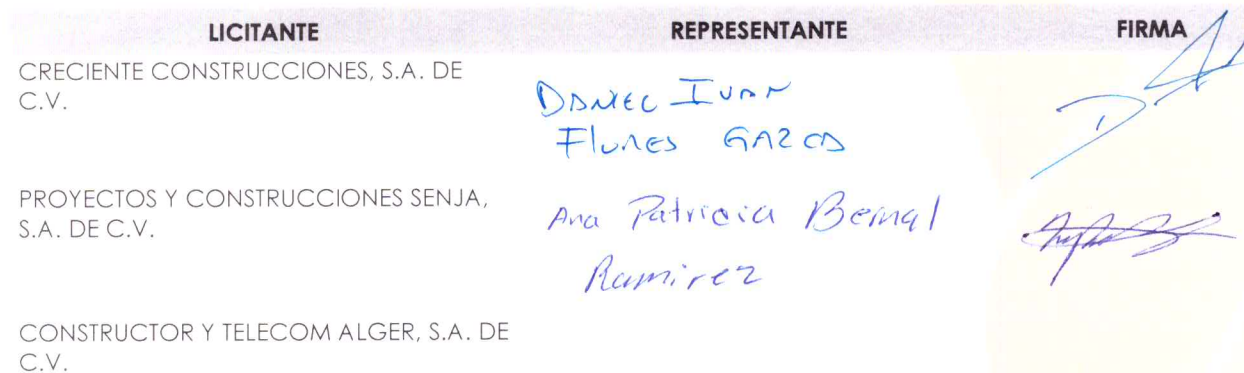 LICITANTE REPRESENTANTE FIRMA
CRECIENTE CONSTRUCCIONES, S.A. DE
C.V.
DANIEL IVAN
FLORES
PROYECTOS Y CONSTRUCCIONES SENJA,
S.A. DE C.V.
Ana Patricia Bernal
Ramirez
CONSTRUCTOR Y TELECOM ALGER, S.A. DE
C.V.